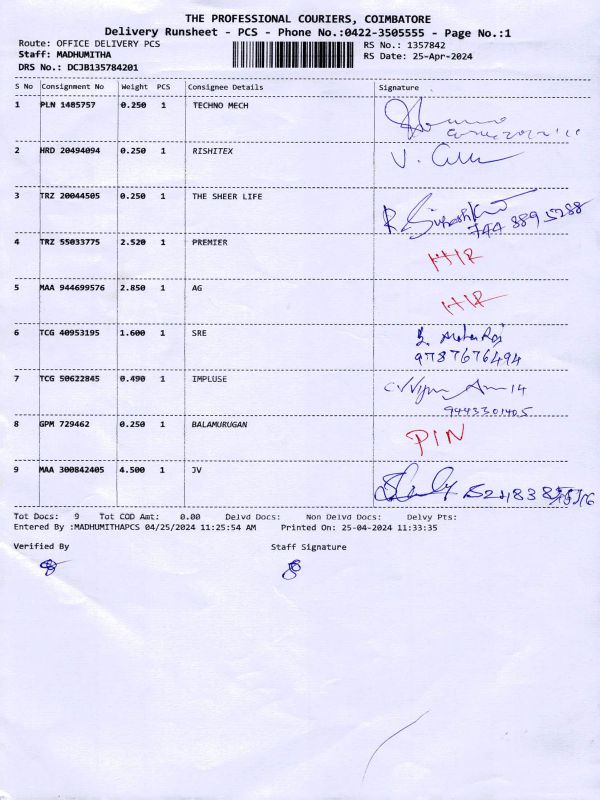 THE PROFESSIONAL COURIERS, COIMBATORE
Delivery Runsheet - PCS - Phone No.:0422-3505555 - Page No.:1
Route: OFFICE DELIVERY PCS RS No.: 1357842
Staff: MADHUMITHA RS Date: 25-Apr-2024
DRS No.: DCJB135784201
S No Consignment No Weight PCS Consignee Details Signature
1 PLN 1485757 0.250 1 TECHNO MECH
2 HRD 20494094 0.250 1 RISHITEX
3 TRZ 20044505 0.250 1 THE SHEER LIFE
744 889 5288
4 TRZ 55033775 2.520 1 PREMIER
5 MAA 944699576 2.850 1 AG
6 TCG 40953195 1.600 1 SRE
9787676494
7 TCG 50622845 0.490 1 IMPLUSE
9443301405
8 GPM 729462 0.250 1 BALAMURUGAN PIN
9 MAA 300842405 4.500 1 JV
Tot Docs: 9 Tot COD Amt: 0.00 Delvd Docs: Non Delvd Docs: Delvy Pts:
Entered By :MADHUMITHAPCS 04/25/2024 11:25:54 AM Printed On: 25-04-2024 11:33:35
Verified By Staff Signature